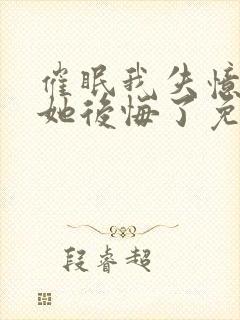 催眠我失憶
她後悔了免
段睿超